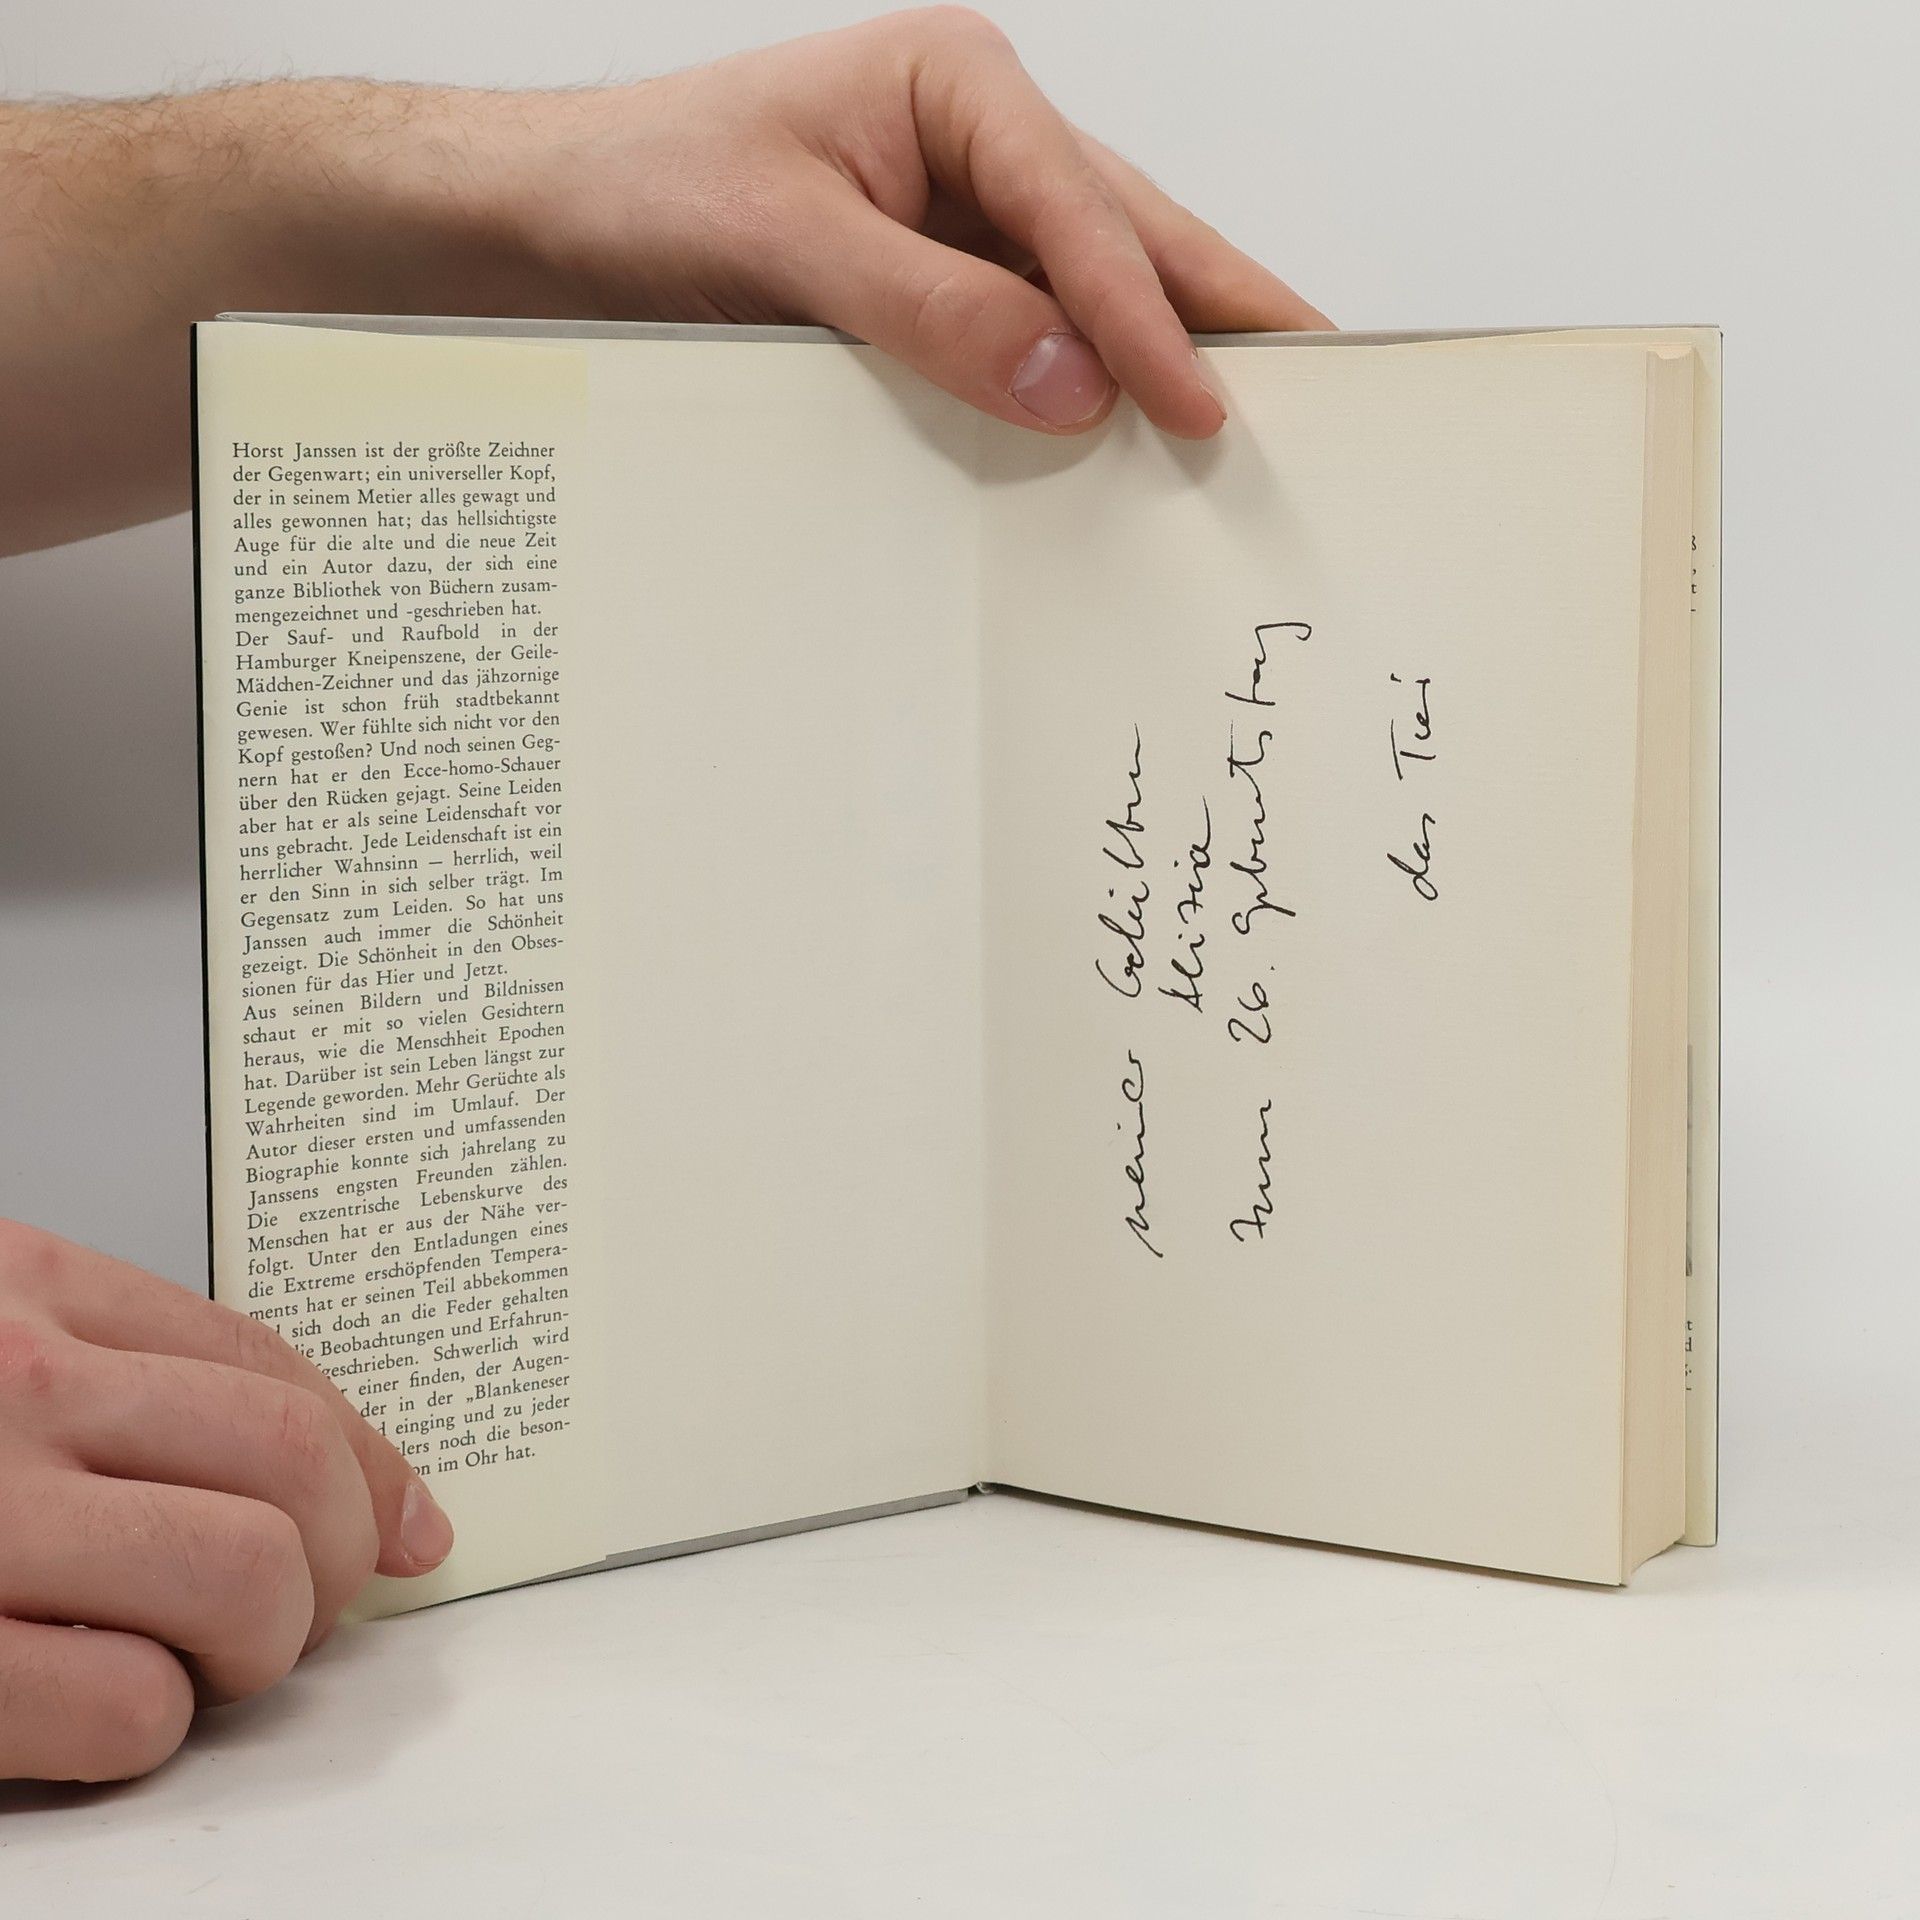 Horst Janssen ist der größte Zeichner
der Gegenwart; ein universeller Kopf,
der in seinem Metier alles gewagt und
alles gewonnen hat; das hellsichtigste
Auge für die alte und die neue Zeit
und ein Autor dazu, der sich eine
ganze Bibliothek von Büchern zusam-
mengezeichnet und -geschrieben hat.
Der Sauf- und Raufbold in der
Hamburger Kneipenszene, der Geile-
Mädchen-Zeichner und das jähzornige
Genie ist schon früh stadtbekannt
gewesen. Wer fühlte sich nicht vor den
Kopf gestoßen? Und noch seinen Geg-
nern hat er den Ecce-homo-Schauer
über den Rücken gejagt. Seine Leiden
aber hat er als seine Leidenschaft vor
uns gebracht. Jede Leidenschaft ist ein
herrlicher Wahnsinn — herrlich, weil
er den Sinn in sich selber trägt. Im
Gegensatz zum Leiden. So hat uns
Janssen auch immer die Schönheit
gezeigt. Die Schönheit in den Obses-
sionen für das Hier und Jetzt.
Aus seinen Bildern und Bildnissen
schaut er mit so vielen Gesichtern
heraus, wie die Menschheit Epochen
hat. Darüber ist sein Leben längst zur
Legende geworden. Mehr Gerüchte als
Wahrheiten sind im Umlauf. Der
Autor dieser ersten und umfassenden
Biographie konnte sich jahrelang zu
Janssens engsten Freunden zählen.
Die exzentrische Lebenskurve des
Menschen hat er aus der Nähe ver-
folgt. Unter den Entladungen eines
die Extreme erschöpfenden Tempera-
ments hat er seinen Teil abbekommen
sich doch an die Feder gehalten
die Beobachtungen und Erfahrun-
geschrieben. Schwerlich wird
einer finden, der Augen-
der in der „Blankeneser
einging und zu jeder
noch die beson-
im Ohr hat.
meiner Geliebten
Alizia
zum 26. Geburtstag
das Tier